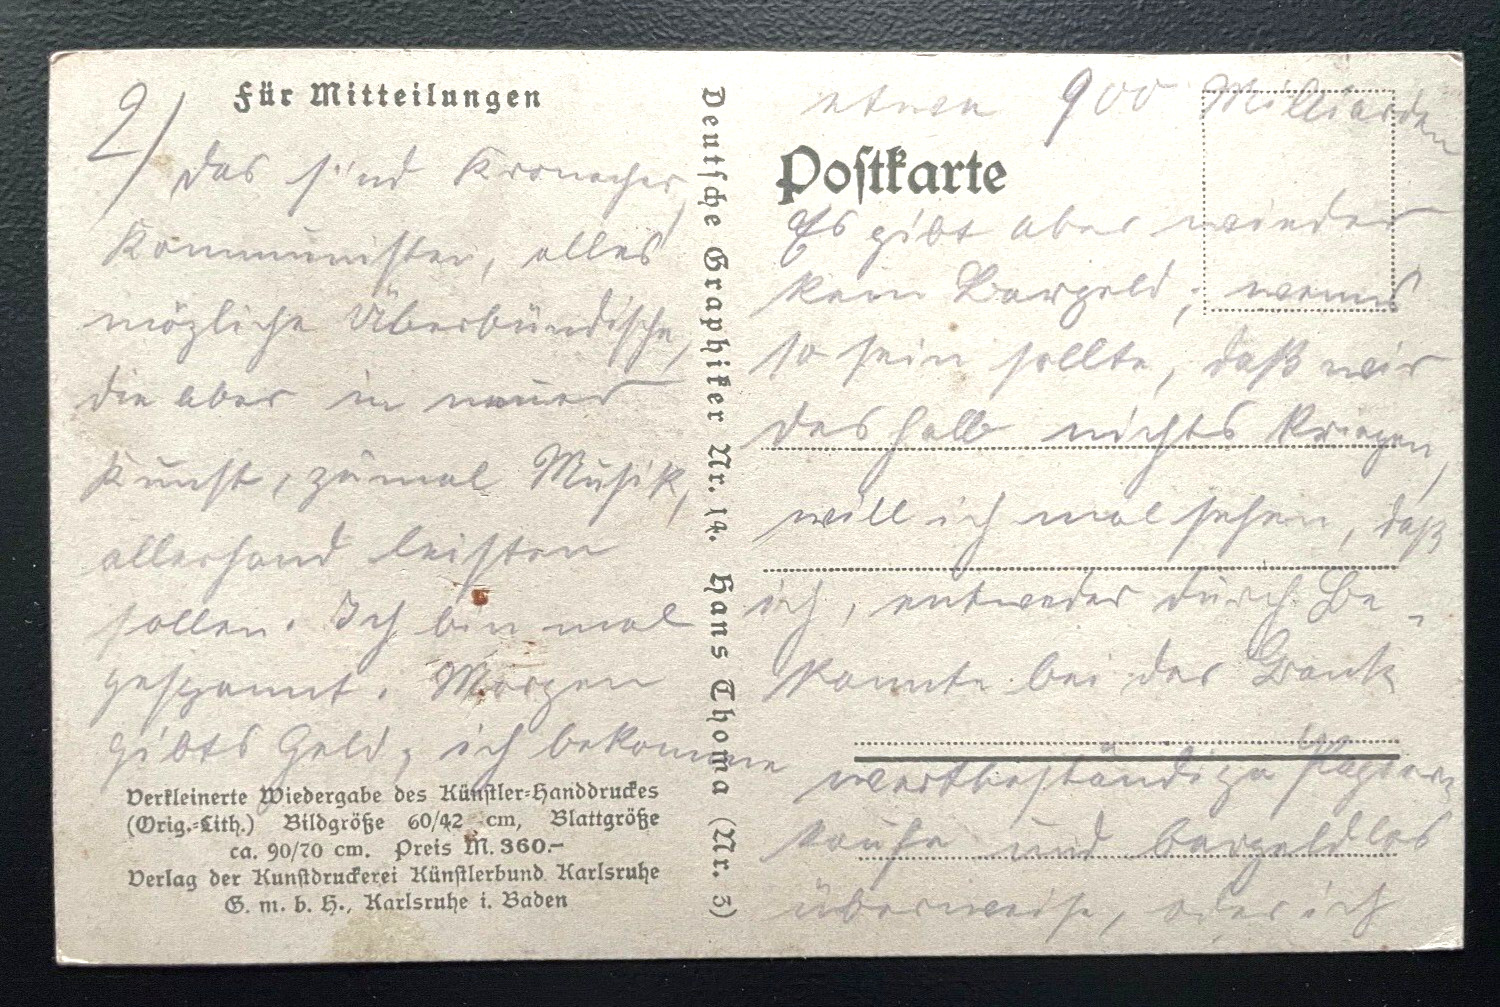 Für Mitteilungen
2/
Das sind Kronacher,
Kommunisten, alles
mögliche Überbündische,
die aber in neuer
Kunst, zumal Musik,
allerhand leisten
sollen. Ich bin mal
gespannt. Morgen
gibts Geld, ich bekomme
Verkleinerte Wiedergabe des Künstler-Handdruckes
(Orig.-Lith.) Bildgröße 60/42 cm, Blattgröße
ca. 90/70 cm. Preis M. 360.-
Verlag der Kunstdruckerei Künstlerbund Karlsruhe
G. m. b. H., Karlsruhe i. Baden
Deutsche Graphiker Nr. 14. Hans Thoma (Nr. 5)
etwa 900 Milliarden
Postkarte
Es gibt aber wieder
kein Bargeld; wenns
so sein sollte, daß wir
deshalb nichts kriegen,
will ich mal sehen, daß
ich, entweder durch Be-
kannte bei der Bank
wertbeständige Papiere
kaufe und bargeldlos
überweise, oder ich